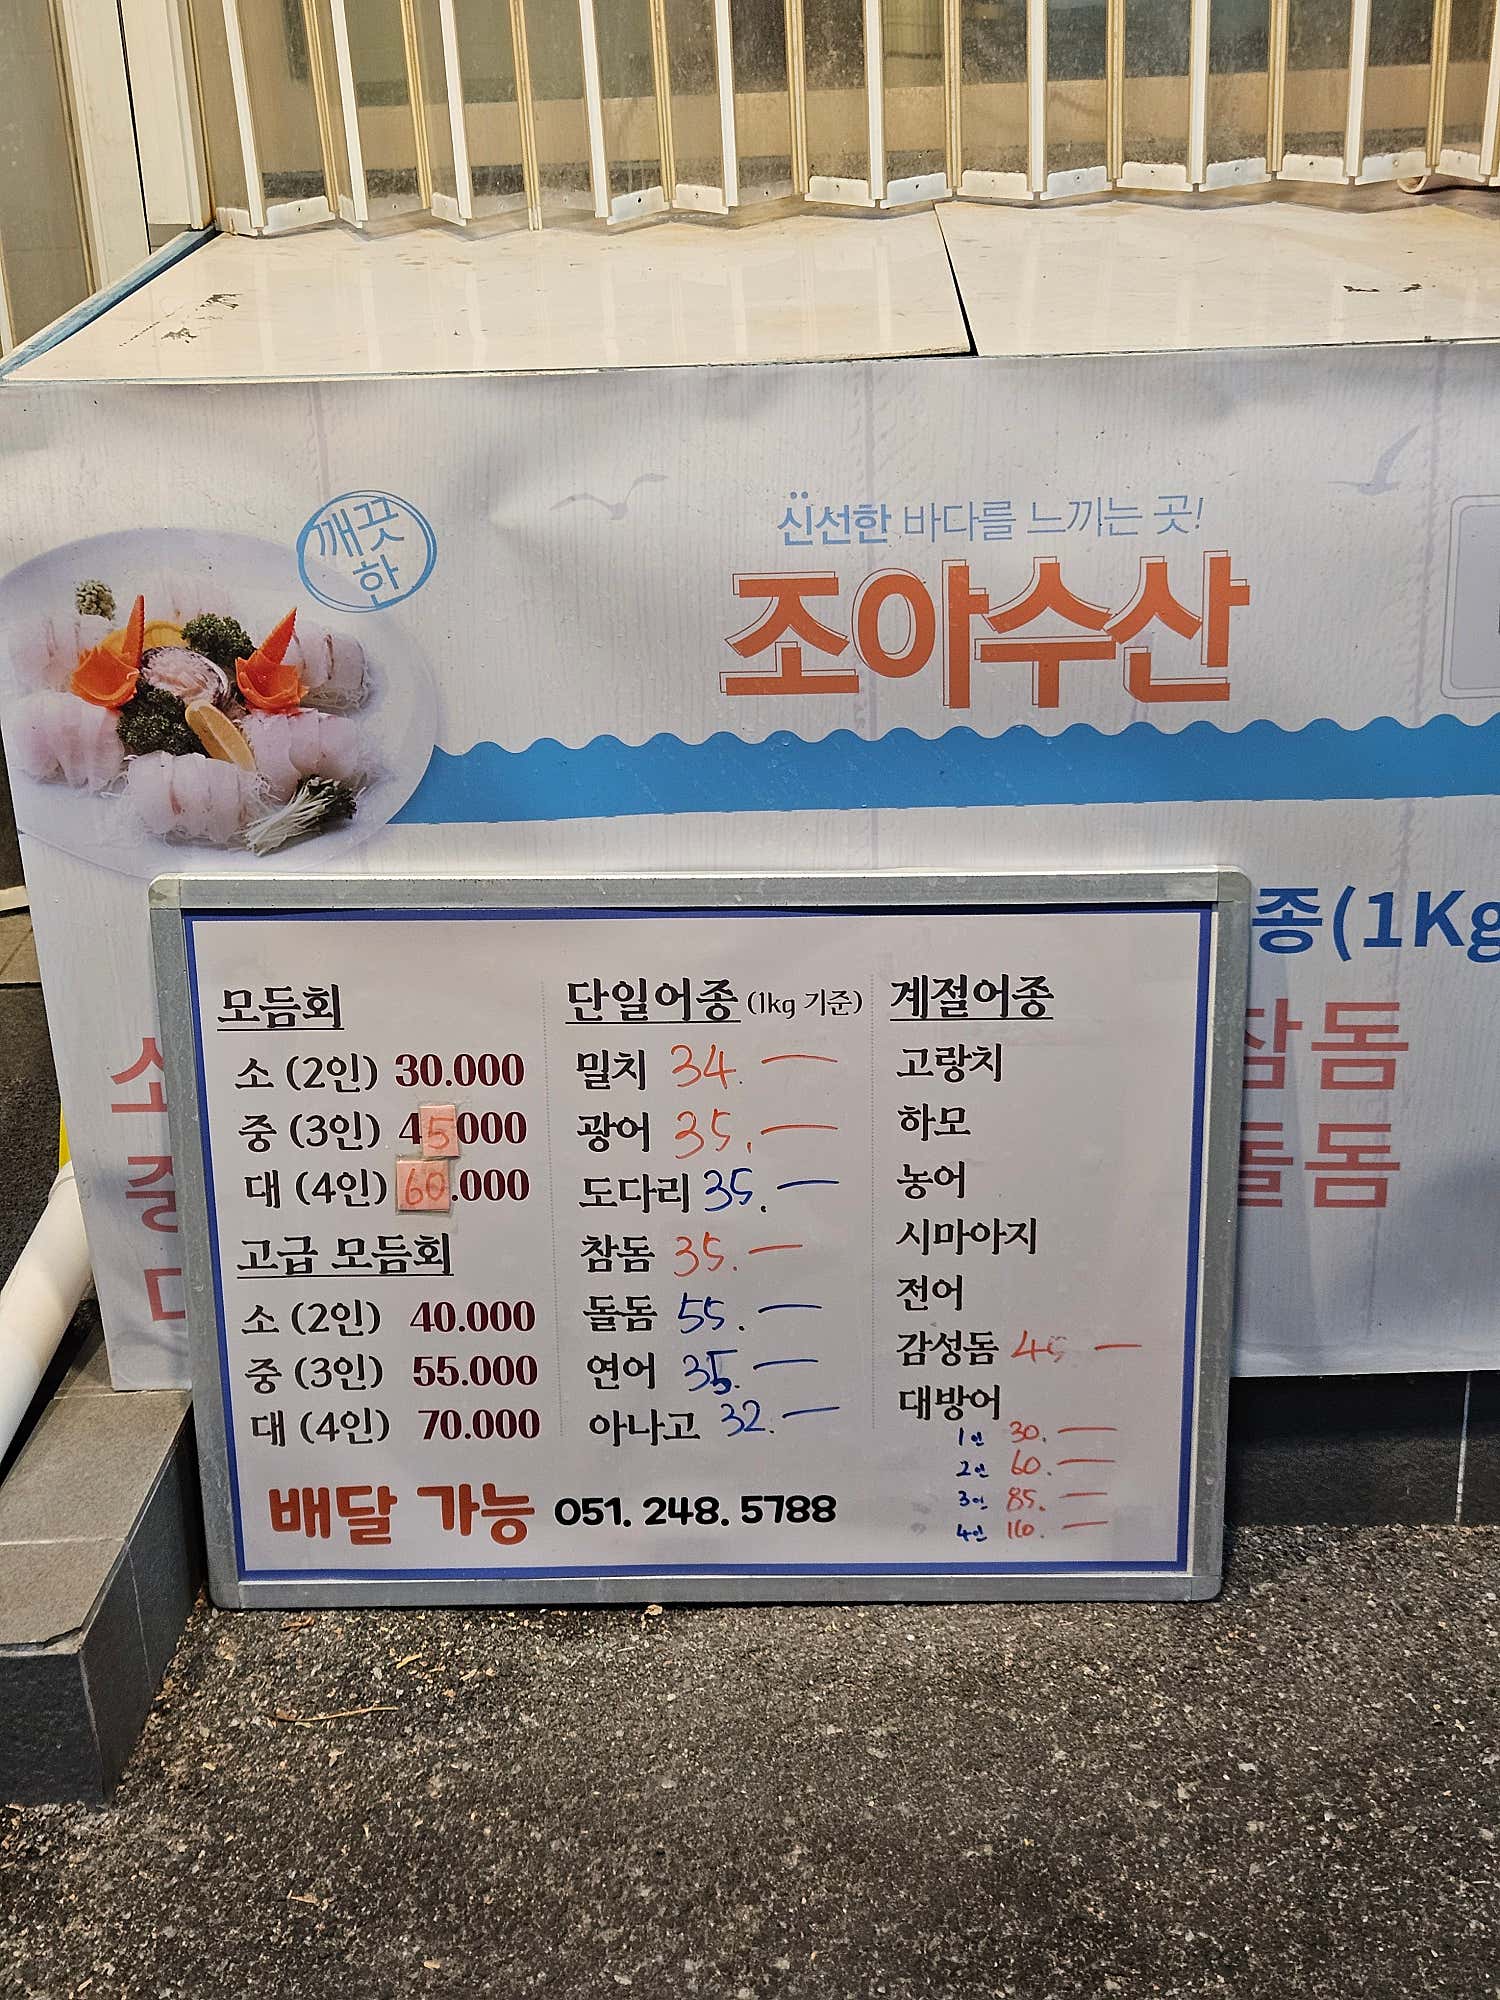 깨끗
한
신선한 바다를 느끼는 곳!
조아수산
종(1Kg
참돔
돌돔
모듬회
소 (2인) 30.000
중 (3인) 45000
대 (4인) 60.000
고급 모듬회
소 (2인) 40.000
중 (3인) 55.000
대 (4인) 70.000
단일어종 (1kg 기준)
밀치 34.―
광어 35.―
도다리 35.―
참돔 35.―
돌돔 55.―
연어 35.―
아나고 32.―
계절어종
고랑치
하모
농어
시마아지
전어
감성돔 ―
대방어
1인 30.―
2인 60.―
3인 85.―
4인 ―
배달 가능 051. 248. 5788